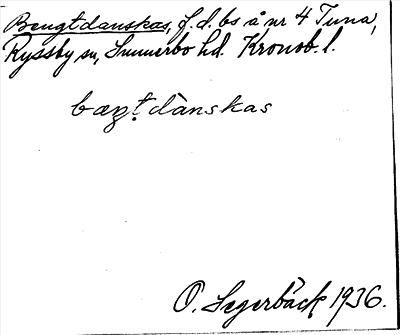 Bengtdanskas, f.d. bs å nr 4 Tuna,
Ryssby sn, Sunnerbo hd. Kronob. l.
bæŋ̣t dànskas
O. Segerbäck 1936.